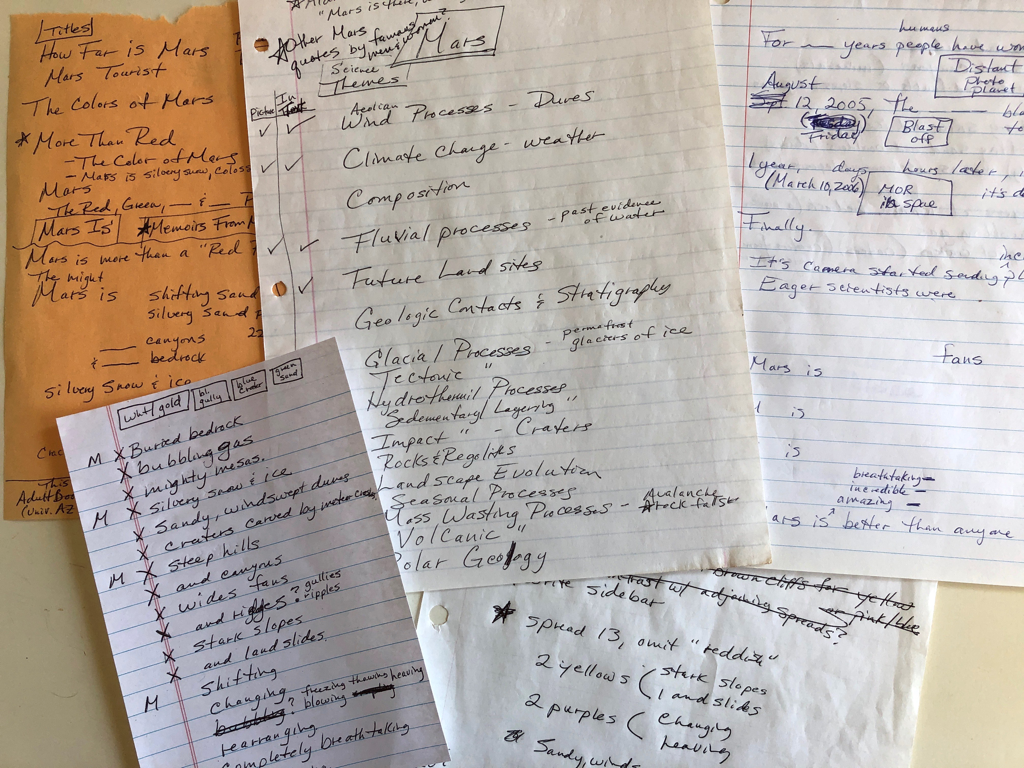 Titles
How Far is Mars
Mars Tourist
The Colors of Mars
* More Than Red
- The Color of Mars
- Mars is silvery snow, coloss
Mars
The Red, Green, — & — P
Mars Is
* Memoirs From M
Mars is more than a "Red P
The might
Mars is shifting sand
silvery sand
canyons
& bedrock
silvery snow & ice
This
Adult Boo
(Univ. AZ
"Mars is there, w
* Other Mars
quotes by famous
Mars
Science
Themes
Picture In Text
Aeolean
✓ ✓ Wind Processes - Dunes
✓ ✓ Climate change - weather
Composition
✓ ✓ Fluvial processes - past evidence
of water
✓ Future Land sites
Geologic Contacts & Stratigraphy
Glacial Processes - permafrost
glaciers of ice
Tectonic "
Hydrothermil Processes
Sedementary Layering "
Impact " - Craters
Rocks & Regoliks
Landscape Evolution
Seasonal Processes
Mass Wasting Processes - Avalanche
* rock falls
Volcanic "
Polar Geology
humans
For — years people have won
Distant
photo
planet
August
Sept 12, 2005, the — bla
(Tuesday
Friday)
Blast
off
1 year, — days — hours later, i
(March 10, 2006)
MOR
in spae
it's d
Finally.
inc
It's camera started sending p
Eager scientists were .
Mars is fans
is
is
breathtaking -
incredible -
amazing -
ars is ^ better than anyone
wht/gold
bl. gully
blue crater
green sand
M x Buried bedrock
x bubbling gas
x mighty mesas.
x silvery snow & ice
M x Sandy, windswept dunes
x craters carved by meteor
x steep hills
M x and canyons
x wides fans
x and ridges? gullies
ripples
x stark slopes
x and landslides.
Shifting
M changing, freezing thawing heaving
bubbling? blowing
rearranging
Completely breathtaking
contrast w/ adjoining spreads?
brown cliffs for yellow
or pink/blue
write sidebar
* Spread 13, omit "reddish"
2 yellows ( stark slopes
landslides
2 purples ( changing
heaving
* Sandy, winds